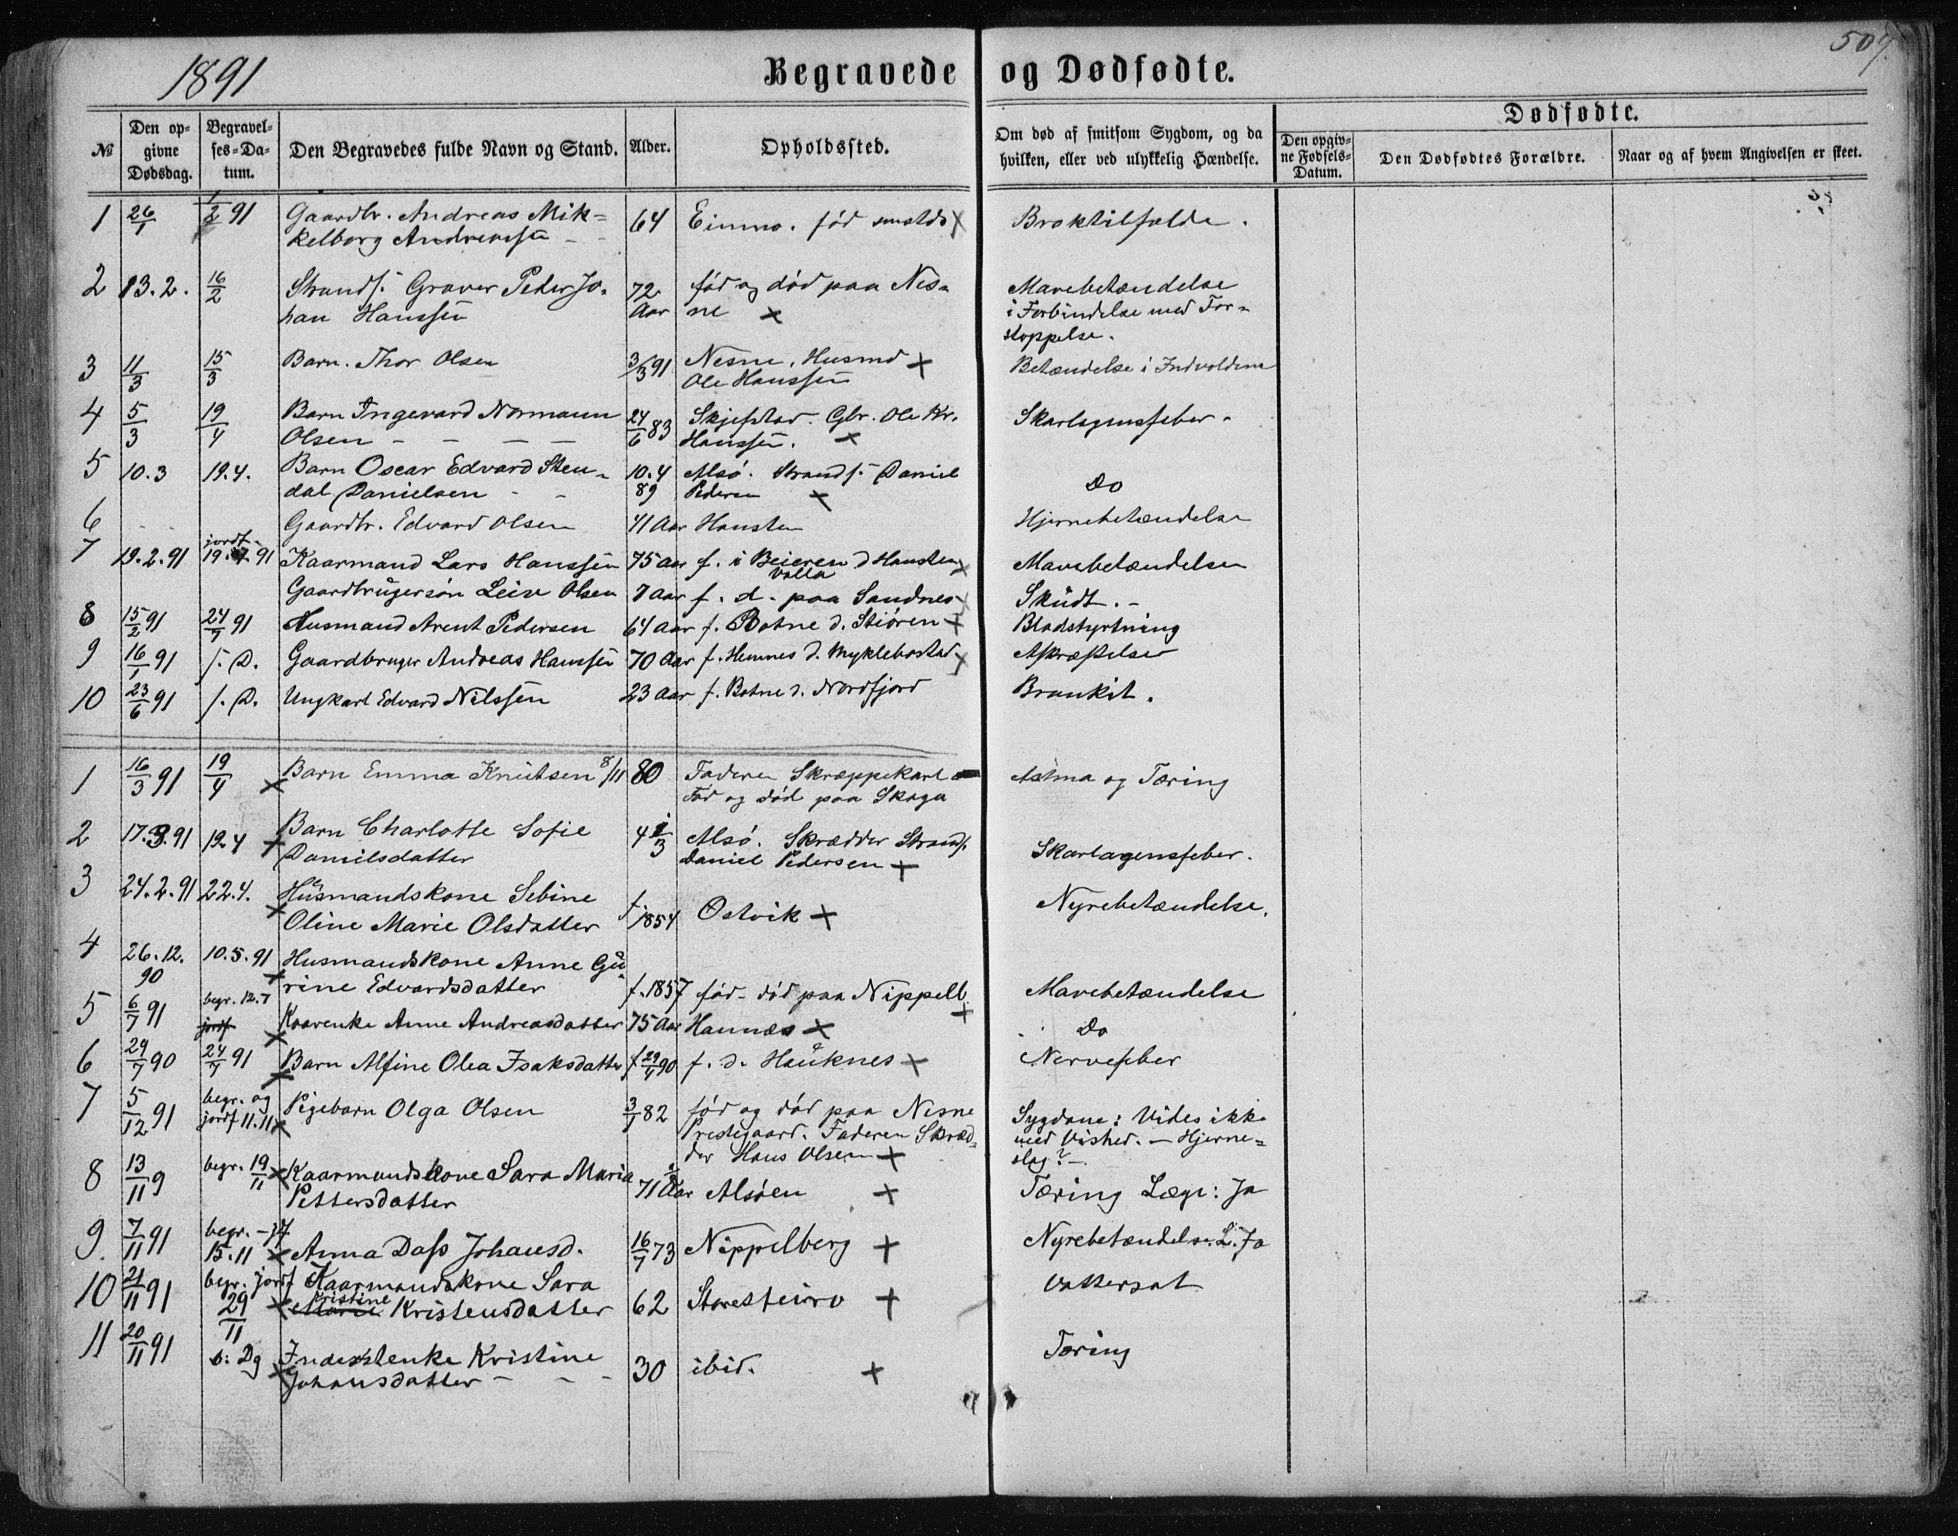 1891
Begravede og Dødfødte.
509.
№
Den opgivne Dødsdag.
Begravelses-Datum.
Den Begravedes fulde Navn og Stand.
Alder.
Opholdssted.
Om død af smitsom Sygdom, og da hvilken, eller ved ulykkelig Hændelse.
Dødfødte.
Den opgivne Fødsels-Datum.
Den Dødfødtes Forældre.
Naar og af hvem Angivelsen er skeet.
1 26/1 1/2 91 Gaardbr. Andreas Mik- 64 Eimno. fød smstds × Broktilfælde.
kelborg Andreassen
2 13.2. 16/2 Strands. Graver Peder Jo- 72 fød og død paa Nes- Mavebetændelse
han Hanssen Aar ne × i Forbindelse med For-
stoppelse.
3 11/3 15/3 Barn. Thor Olsen 3/3 91 Nesne, Husmd × Betændelse i Indvoldene
Ole Hanssen
4 5/3 19/4 Barn Ingevard Normann 24/6 83 Skjefstad. Gbr. Ole Kr. Skarlagensfeber.
Olsen — — — — Hanssen. ×
5 10.3 19.4. Barn Oscar Edvard Sten- 10.4 Alsø. Strands. Daniel Do
dal Danielsen 89 Pedersen ×
6 Gaardbr. Edvard Olsen 41 Aar Hansten Hjernebetændelse
7 19.2.91 jordf. 19.4.91 Kaarmand Lars Hanssen 75 Aar f. i Beieren d Hansten × Mavebetændelse
Gaardbrugersøn Leise Olsen 7 Aar f. d. paa Valla Sandnes × Skudt. -
8 15/2 91 24/7 91 Husmand Arent Pedersen 64 Aar f. Botne d. Stiøren + Blodstyrtning
9 16/1 91 s. D. Gaardbruger Andreas Hanssen 70 Aar f. Hemnes d. Myklebostad × Afkræftelse
10 23/6 91 s. D. Ungkarl Edvard Nilssen 23 Aar f. Botne d. Nordfjord Bronkit.
1 16/3 91 19/4 × Barn Emma Knutsen 8/11 80 Faderen Skræppekarl Astma og Tæring
Fød og død paa Skaga
2 17.3.91 19.4 × Barn Charlotte Sofie 4 1/3 Alsø. Skrædder Strands. Skarlagensfeber.
Danielsdatter Daniel Pedersen +
3 24.2.91 22.4. × Husmandskone Sebine f. 1854 Ostvik + Nyrebetændelse.
Oline Marie Olsdatter
4 26.12. 10.5.91 × Husmandskone Anne Gu-
90 rine Edvardsdatter f. 1857 fød - død paa Nippelb. + Mavebetændelse
5 6/7 91 begr. 12.7 jordf × Kaarenke Anne Andreasdatter 75 Aar Hannæs × Do
6 29/7 90 24/7 91 × Barn Alfine Olea Isaksdatter f 29/1 90 f. d. Hauknes × Nervefeber
7 5/12 91 begr. og jordf 11.11 × Pigebarn Olga Olsen 3/1 82 fød og død paa Nesne Sygdom: Vides ikke
Prestegaard. Faderen Skræd- med Vished. — Hjerne-
der Hans Olsen + slag? -
8 13/11 9 begr. 19/11 × Kaarmandskone Sara Maria 71 Aar Alsøen × Tæring Læge: Ja
Pettersdatter
9. 7/11 91 begr. - jf 15.11 × Anna Dass Johansd. 16/7 73 Nippelberg + Nyrebetændelse. L. Ja
10 21/11 91 begr. jordf 29/11 × Kaarmandskone Sara 62 Storesteiro + Vattersot
Kristine Kristensdatter
11 20/11 91 s. Dg × Inderstenke Kristine 30 ibid. + Tæring
Johansdatter — — —